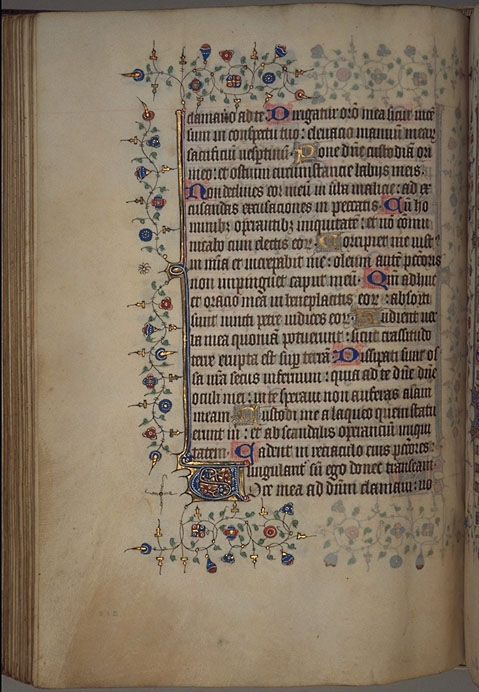 clamavero ad te. Dirigatur oro mea sicut ince
sum in conspectu tuo: elevacio manuum mear
sacrificium vesptinum. Pone dne custodiā ori
meo: et ostium circumstantie labijs meis.
Non declines cor meū in v̄ba malicie: ad ex
cusandas excusaciones in peccatis. Cū ho
minibꝫ operantibꝫ iniquitatē: et nō cōmu
nicabo cum electis eoꝝ. Corripiet me iustꝰ
in mīa et increpabit me: oleum autē pctōris
non impinguet caput meū. Qm̄ adhuc
et oracio mea in bn̄eplacitis eoꝝ: absorti
sunt iuncti petre iudices eoꝝ. Audient ver
ba mea quoniā potuerunt: sicut crassitudo
terre erupta est suꝑ terrā. Dissipata sunt os
sa nr̄a secus infernum: quia ad te dn̄e dn̄e
oculi mei: in te speravi non auferas aīam
meam. Custodi me a laqueo quem statu
erunt m̄: et ab scandalis operanciū iniqui
tatem. Cadent in reciaculo eius pctōres:
singularit̄ sū ego donec transeam.
Voce mea ad dn̄m clamavi: vo